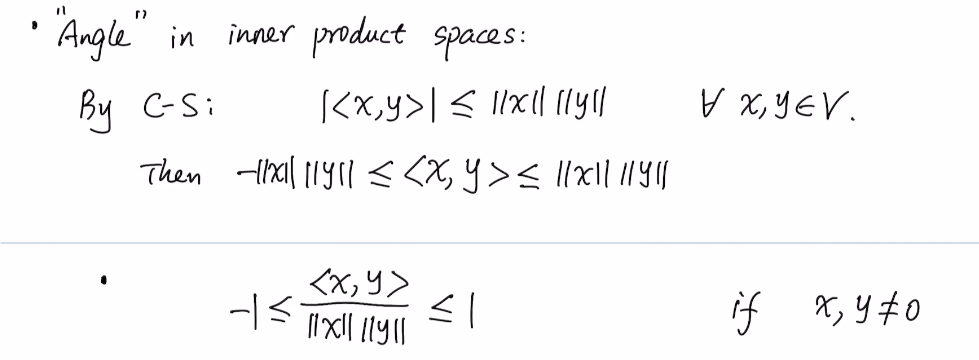 • "Angle" in inner product spaces:
By C-S: |<x,y>| ≤ ||x|| ||y|| ∀ x, y ∈ V.
Then -||x|| ||y|| ≤ <x, y> ≤ ||x|| ||y||
• -1 ≤ <x, y> / ||x|| ||y|| ≤ 1 if x, y ≠ 0